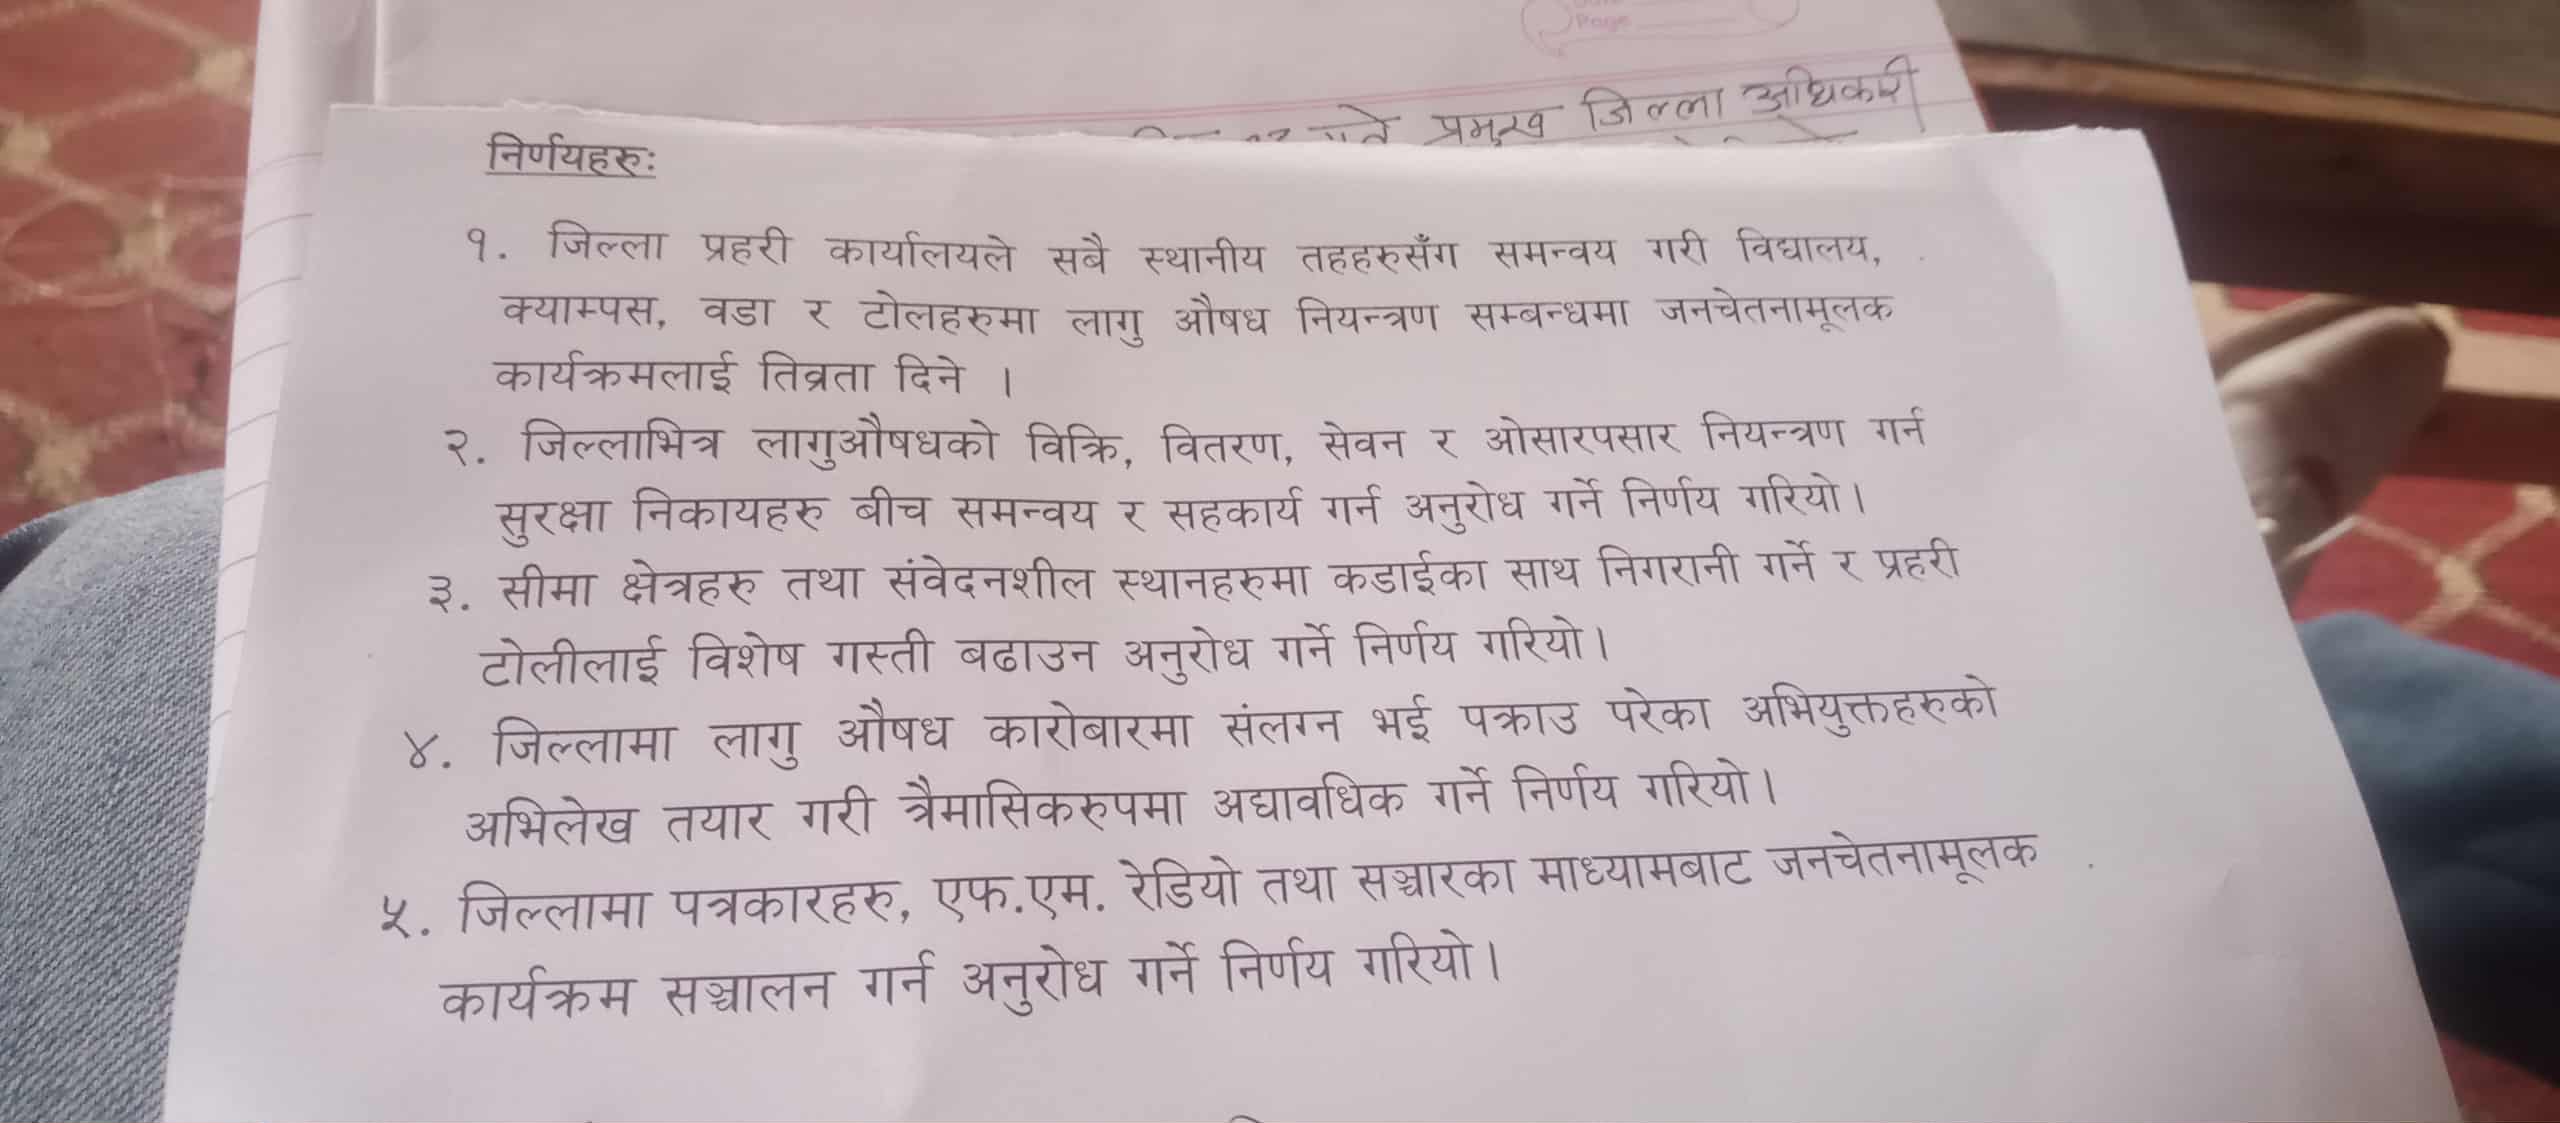 Page
प्रमुख जिल्ला अधिकारी
निर्णयहरुः
१. जिल्ला प्रहरी कार्यालयले सबै स्थानीय तहहरुसँग समन्वय गरी विद्यालय,
क्याम्पस, वडा र टोलहरुमा लागु औषध नियन्त्रण सम्बन्धमा जनचेतनामूलक
कार्यक्रमलाई तिव्रता दिने ।
२. जिल्लाभित्र लागुऔषधको विक्रि, वितरण, सेवन र ओसारपसार नियन्त्रण गर्न
सुरक्षा निकायहरु बीच समन्वय र सहकार्य गर्न अनुरोध गर्ने निर्णय गरियो।
३. सीमा क्षेत्रहरु तथा संवेदनशील स्थानहरुमा कडाईका साथ निगरानी गर्ने र प्रहरी
टोलीलाई विशेष गस्ती बढाउन अनुरोध गर्ने निर्णय गरियो।
४. जिल्लामा लागु औषध कारोबारमा संलग्न भई पक्राउ परेका अभियुक्तहरुको
अभिलेख तयार गरी त्रैमासिकरुपमा अद्यावधिक गर्ने निर्णय गरियो।
५. जिल्लामा पत्रकारहरु, एफ.एम. रेडियो तथा सञ्चारका माध्यामबाट जनचेतनामूलक
कार्यक्रम सञ्चालन गर्न अनुरोध गर्ने निर्णय गरियो।